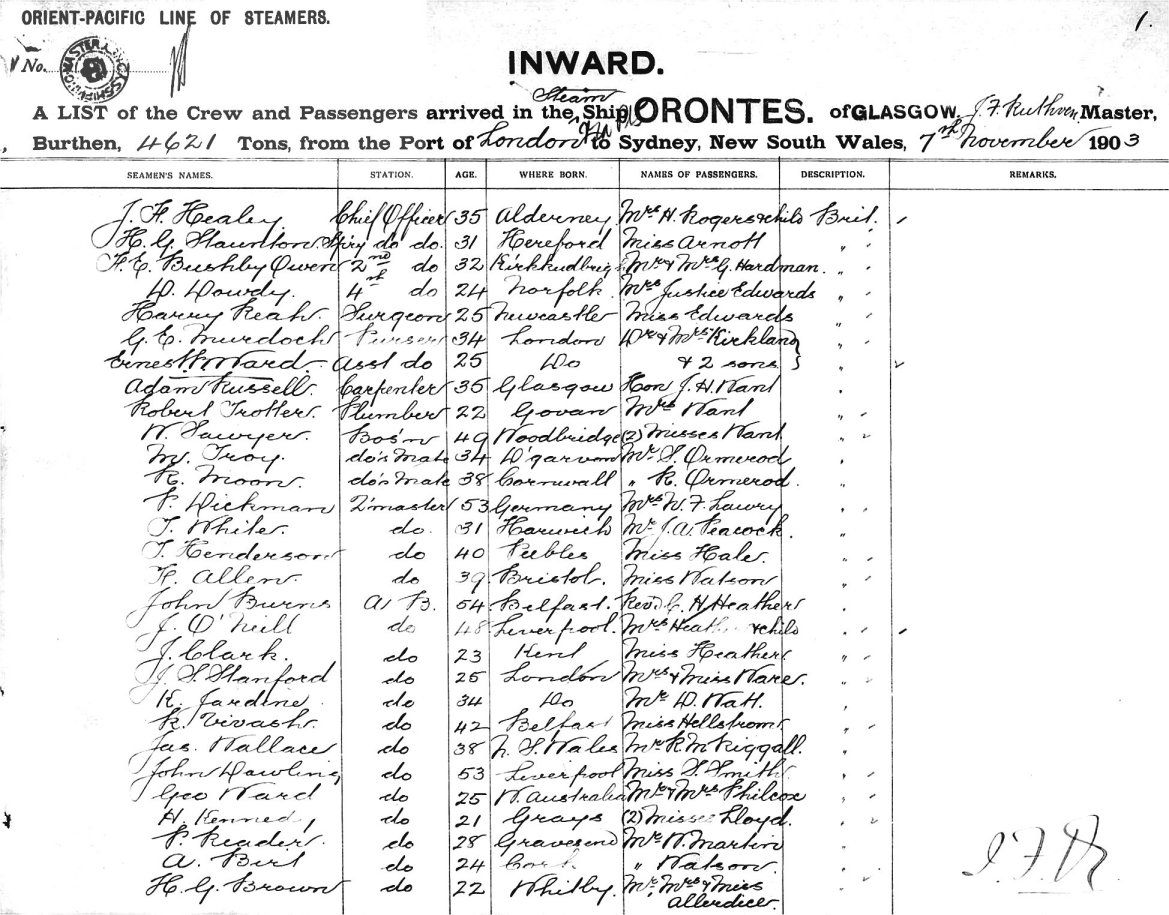 ORIENT-PACIFIC LINE OF STEAMERS.
1.
No.
INWARD.
Steam
A LIST of the Crew and Passengers arrived in the Ship ORONTES. of GLASGOW, J. F. Ruthven Master,
Burthen, 4621 Tons, from the Port of London to Sydney, New South Wales, 7th November 1903
SEAMEN'S NAMES. STATION. AGE. WHERE BORN. NAMES OF PASSENGERS. DESCRIPTION. REMARKS.
J. F. Healey Chief Officer 35 Alderney Mrs H. Rogers & child Brit.
H. G. Staunton do do. 31 Hereford Miss Arnott "
F. E. Bushby Owen 2nd do 32 Kirkcudbrig Mr & Mrs G. Hardman. "
D. Dowdy. 4th do 24 Norfolk Mrs Justice Edwards "
Harry Reah. Surgeon 25 Newcastle Miss Edwards "
G. E. Murdoch Purser 34 London Dr & Mrs Kirkland "
Ernest W. Ward. Asst do 25 Do & 2 sons
Adam Russell. Carpenter 35 Glasgow Hon J. H. Want "
Robert Trotter. Plumber 22 Govan Mrs Want "
W. Sawyer. Bos'n 49 Woodbridge (2) Misses Want "
M. Troy. do's Mate 34 D'garvan Mr S. Ormerod "
R. Moon. do's Mate 38 Cornwall " R. Ormerod. "
P. Dickman 2'master 53 Germany Mrs W. F. Lawry "
T. White. do. 31 Harwich Mr J. A. Peacock. "
T. Henderson do 40 Peebles Miss Hale. "
F. Allen do 39 Bristol. Miss Watson "
John Burns A B. 54 Belfast. Revd G. H. Heather "
J. O'Neill do 48 Liverpool. Mrs Heather & child "
J. Clark. do 23 Kent Miss Heather "
J. S. Stanford do 25 London Mrs & Miss Ware. "
R. Jardine do 34 Do Mr D. Watt. "
R. Vivash. do 42 Belfast Miss Hellstrom "
Jas. Wallace do 38 N. S. Wales Mr R. McKiggall. "
John Dowling do 53 Liverpool Miss S. Smith "
Geo Ward do 25 W. Australia Mr & Mrs Philcox "
H. Kennedy do 21 Grays (2) Misses Lloyd. "
P. Reader. do 28 Gravesend Mr W. Martin
A. Birt do 24 Cork " Watson.
H. G. Brown do 22 Whitby. Mr, Mrs & Miss "
Allerdice.
J.F.R